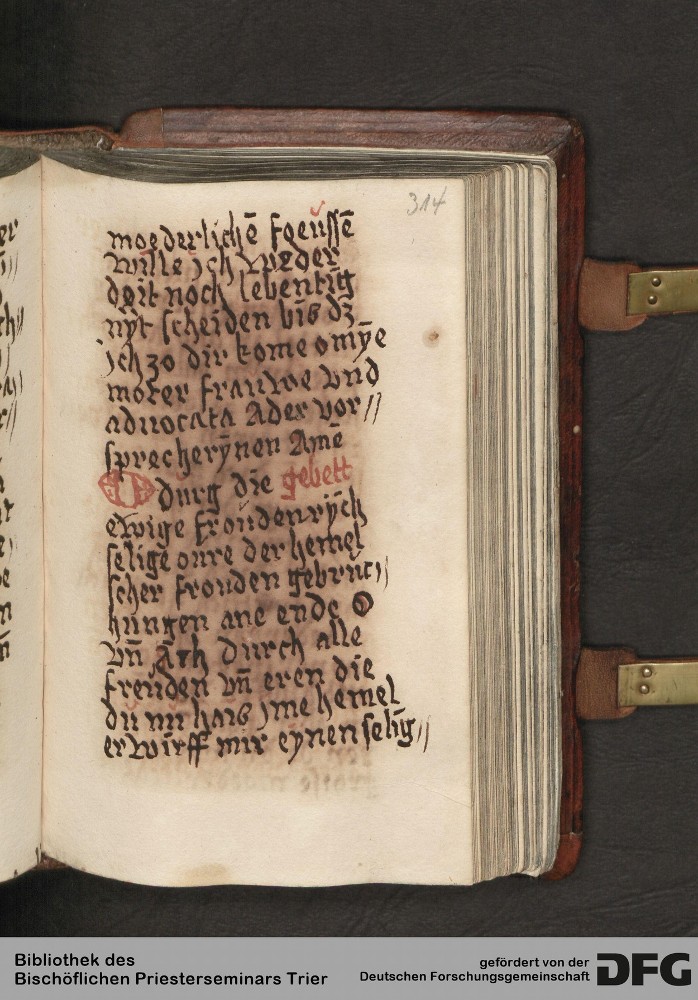 314
moederlichē foeussē
wille jch weder
doit noch lebentig
nyt scheiden bis dz
jch zo dir kome o mÿe
moter frauwe vnd
aduocata Ader vor//
sprecherÿnen Amē
O durg die gebett
ewige froudenrÿch
selige oure der hemel
scher frouden gebruc//
hungen ane ende O
vn̄ Ach durch alle
freuden vn̄ eren die
du nu hais jme hemel
erwirff mir eynen selig//
Bibliothek des
Bischöflichen Priesterseminars Trier
gefördert von der
Deutschen Forschungsgemeinschaft
DFG